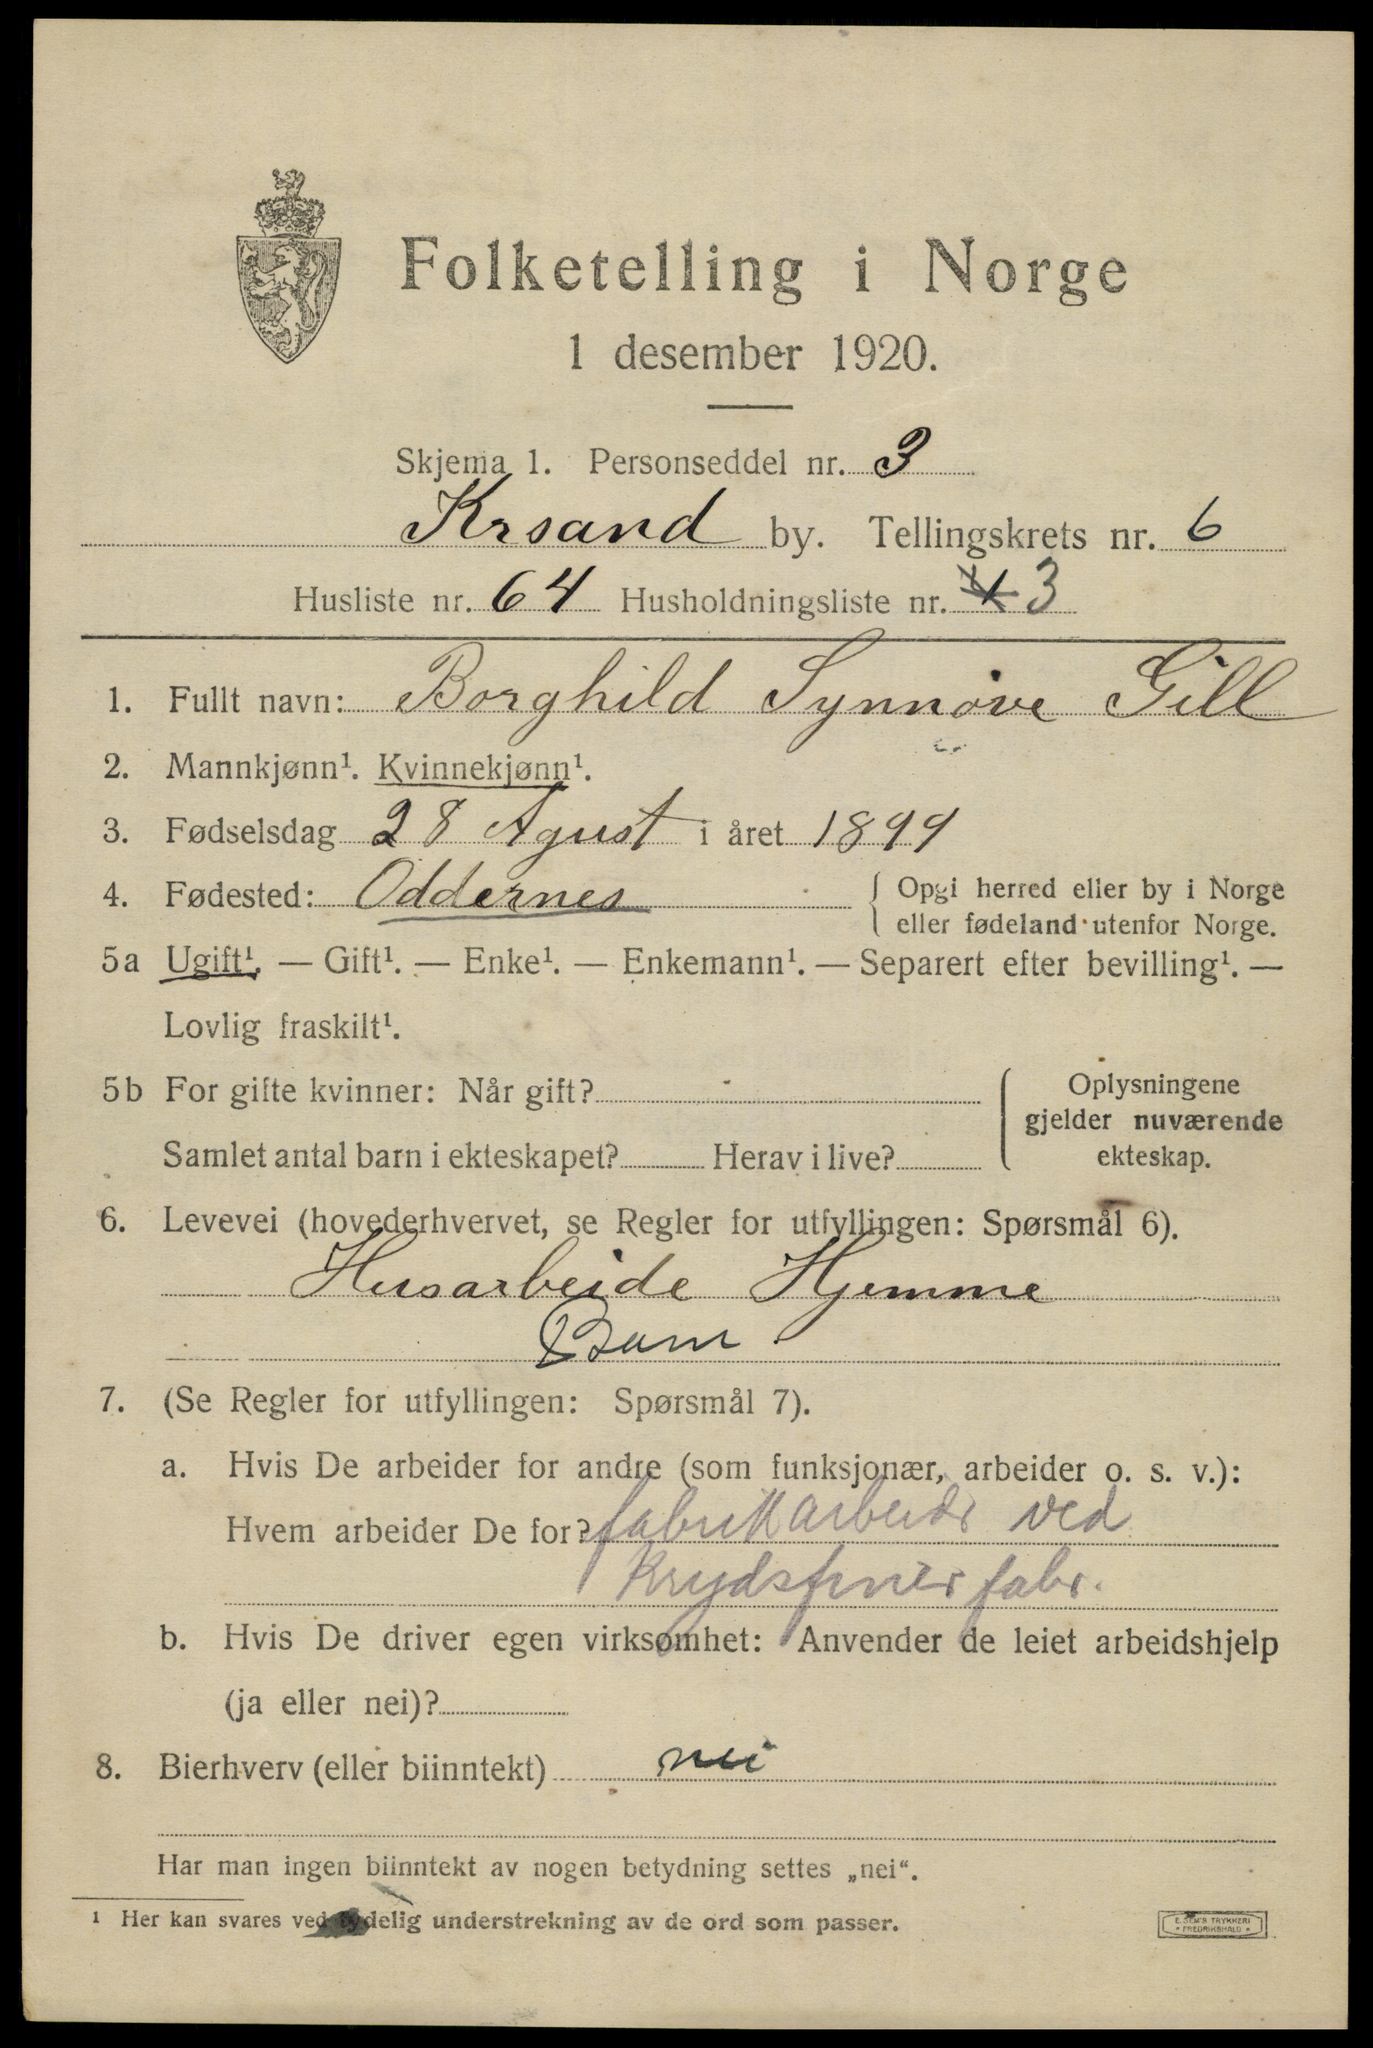 Folketelling i Norge
1 desember 1920.
Skjema 1. Personseddel nr. 3
Krsand by. Tellingskrets nr. 6
Husliste nr. 64 Husholdningsliste nr. 3
1. Fullt navn: Borghild Synnøve Gill
2. Mannkjønn¹. Kvinnekjønn¹.
3. Fødselsdag 28 Agust i året 1899
4. Fødested: Oddernes { Opgi herred eller by i Norge
eller fødeland utenfor Norge.
5a Ugift¹. — Gift¹. — Enke¹. — Enkemann¹. — Separert efter bevilling¹. —
Lovlig fraskilt¹.
5b For gifte kvinner: Når gift?
Samlet antal barn i ekteskapet? Herav i live?
Oplysningene
gjelder nuværende
ekteskap.
6. Levevei (hovederhvervet, se Regler for utfyllingen: Spørsmål 6).
Husarbeide Hjemme
Barn
7. (Se Regler for utfyllingen: Spørsmål 7).
a. Hvis De arbeider for andre (som funksjonær, arbeider o. s. v.):
Hvem arbeider De for? ved
fabr.
b. Hvis De driver egen virksomhet: Anvender de leiet arbeidshjelp
(ja eller nei)?
8. Bierhverv (eller biinntekt) nei
Har man ingen biinntekt av nogen betydning settes „nei“.
¹ Her kan svares ved tydelig understrekning av de ord som passer.
E. SEM'S TRYKKERI
* FREDRIKSHALD *